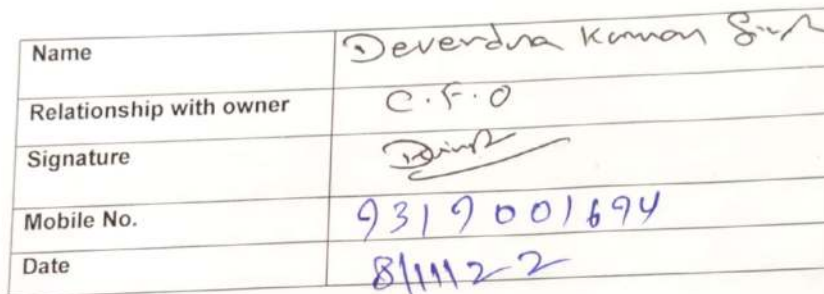 Name Devendra Kumar Singh
Relationship with owner C.F.O
Signature
Mobile No. 9319001694
Date 8/11/22